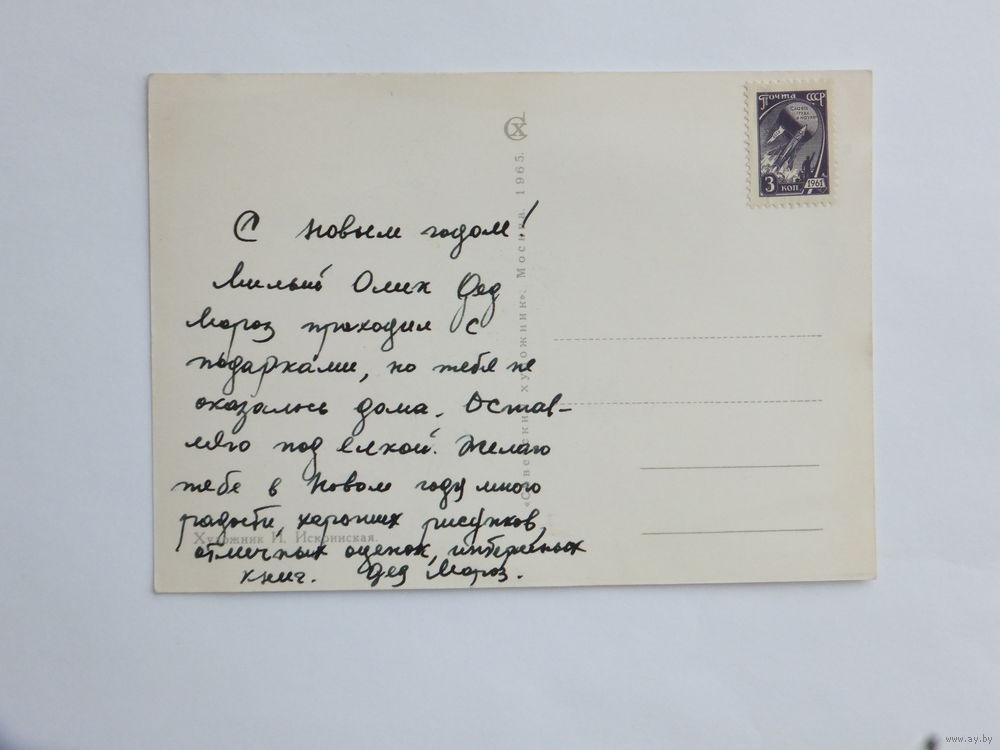 Почта СССР
Слава
труда
и науки
3 коп 1961
С новым годом!
Милый Олик Дед
Мороз проходил с
подарками, но тебя не
оказалось дома. Остав-
ляю под елкой. Желаю
тебе в Новом году много
радости, хороших рисунков,
отличных оценок, интересных
книг. Дед Мороз.
Художник И. Искринская.
«Советский художник». Москва. 1965.
www.ay.by